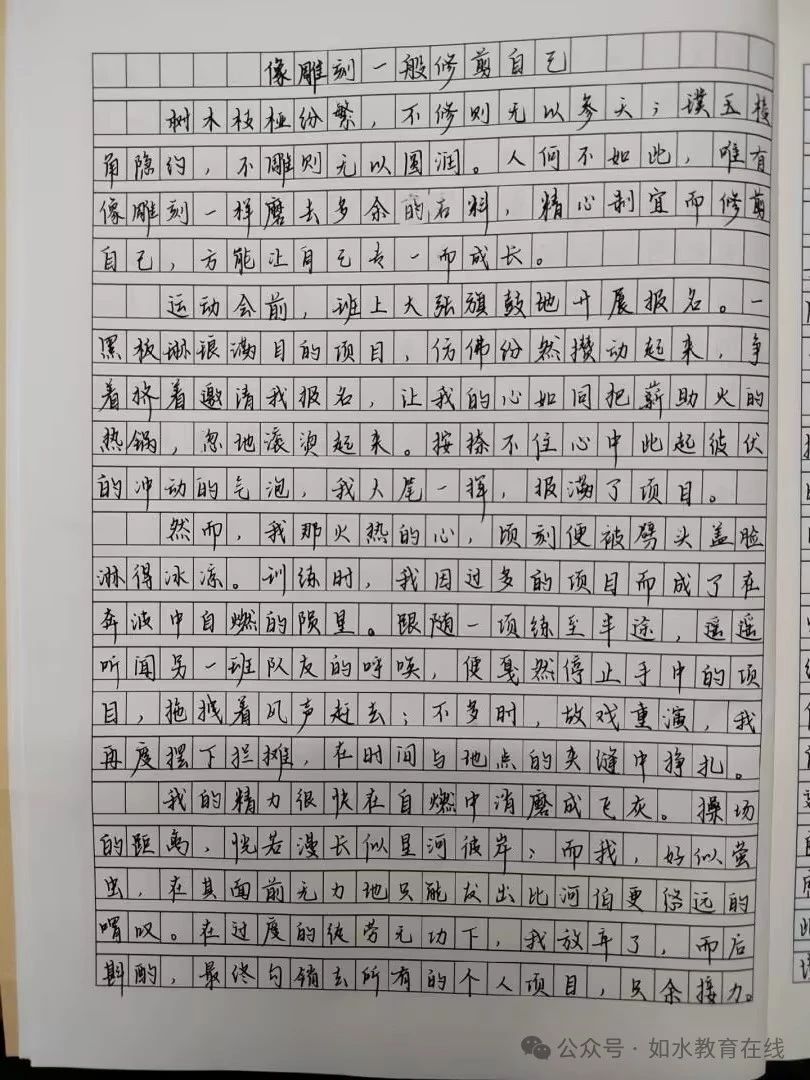 像雕刻一般修剪自己
树木枝桠纷繁，不修则无以参天；璞玉棱
角隐约，不雕则无以圆润。人何不如此，唯有
像雕刻一样磨去多余的石料，精心制宜而修剪
自己，方能让自己专一而成长。
运动会前，班上大张旗鼓地开展报名。一
黑板琳琅满目的项目，仿佛纷然攒动起来，争
着挤着邀请我报名，让我的心如同把薪助火的
热锅，忽地滚烫起来。按捺不住心中此起彼伏
的冲动的气泡，我大尾一挥，报满了项目。
然而，我那火热的心，顷刻便被劈头盖脸
淋得冰凉。训练时，我因过多的项目而成了在
奔波中自燃的陨星。跟随一项练至半途，遥遥
听闻另一班队友的呼唤，便戛然停止手中的项
目，拖拽着风声赶去；不多时，故戏重演，我
再度摆下拦摊，在时间与地点的夹缝中挣扎。
我的精力很快在自燃中消磨成飞灰。操场
的距离，恍若漫长似星河彼岸；而我，好似萤
虫，在其面前无力地只能发出比河伯更悠远的
喟叹。在过度的徒劳无功下，我放弃了，而后
斟酌，最终勾销去所有的个人项目，只余接力。
公众号·如水教育在线